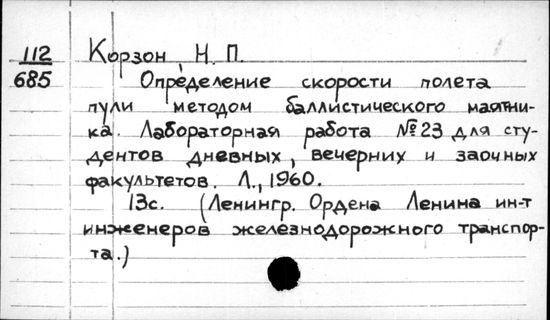 112 Корзон, Н. П.
685 Определение скорости полета
пули методом баллистического маятни-
ка. Лабораторная работа №23 для сту-
дентов дневных, вечерних и заочных
факультетов. Л., 1960.
13с. (Ленингр. Ордена Ленина ин-т
инженеров железнодорожного транспор-
та.)